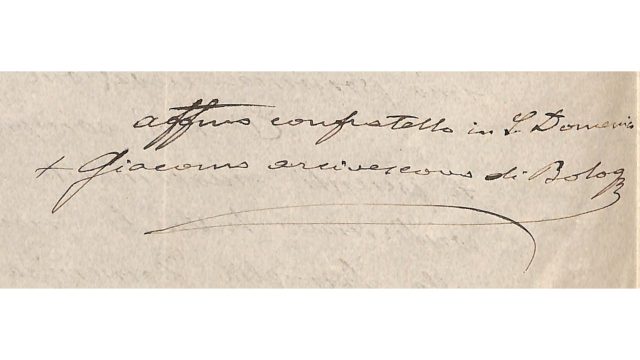 affmo confratello in S. Domenico
+ Giacomo arcivescovo di Bologa